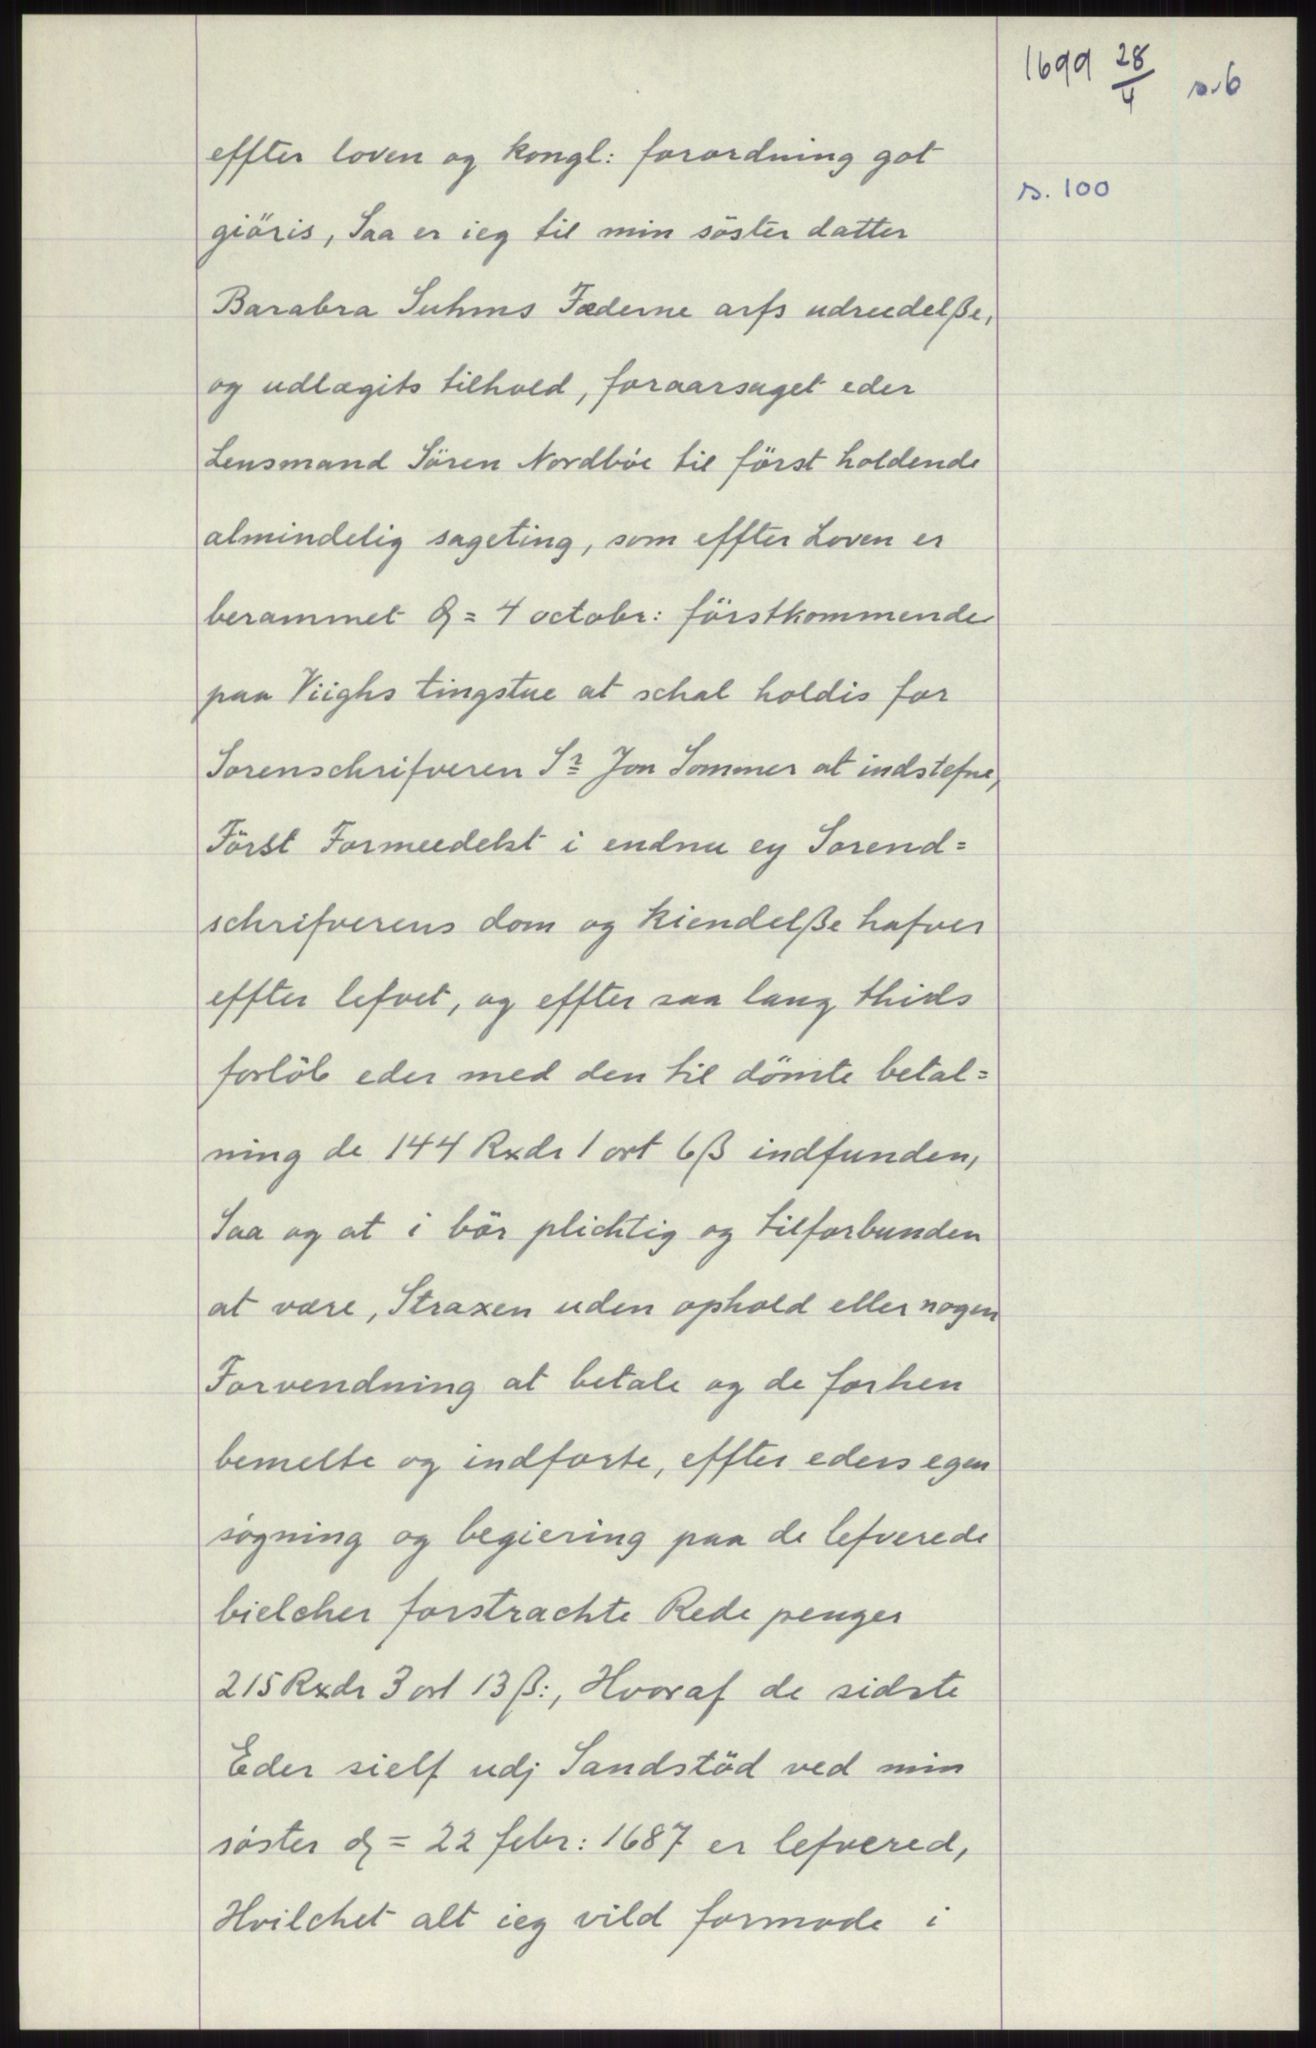 1699 28/4 s. 6
s. 100
effter loven og kongl: forordning got
giöris, Saa er ieg til min söster datter
Barabra Suhms Fæderne arfs udreedelße,
og udlægits tilhold, foraarsaget eder
Lensmand Sören Nordböe til först holdende
almindelig sageting, som effter Loven er
berammet d = 4 octobr: förstkommende
paa Viighs tingstue at schal holdis for
Sorenschrifveren Sr Jon Sommer at indstefne,
Först Formeedelst i endnu ey Sorend=
schrifverens dom og kiendelße hafver
effter lefvet, og effter saa lang thids
forlöb eder med den til dömte betal=
ning de 144 Rxdr 1 ort 6 ß indfunden,
Saa og at i bör plichtig og tilforbunden
at være, Straxen uden ophold eller nogen
Forvendning at betale og de forhen
bemelte og indförte, effter eders egen
sögning og begiering paa de lefverede
bielcher forstrachte Rede penger
215 Rxdr 3 ort 13 ß:, Hvoraf de sidste
Eder sielf udj Sandstöd ved min
söster d = 22 febr: 1687 er lefvered,
Hvilchet alt ieg vild formode i